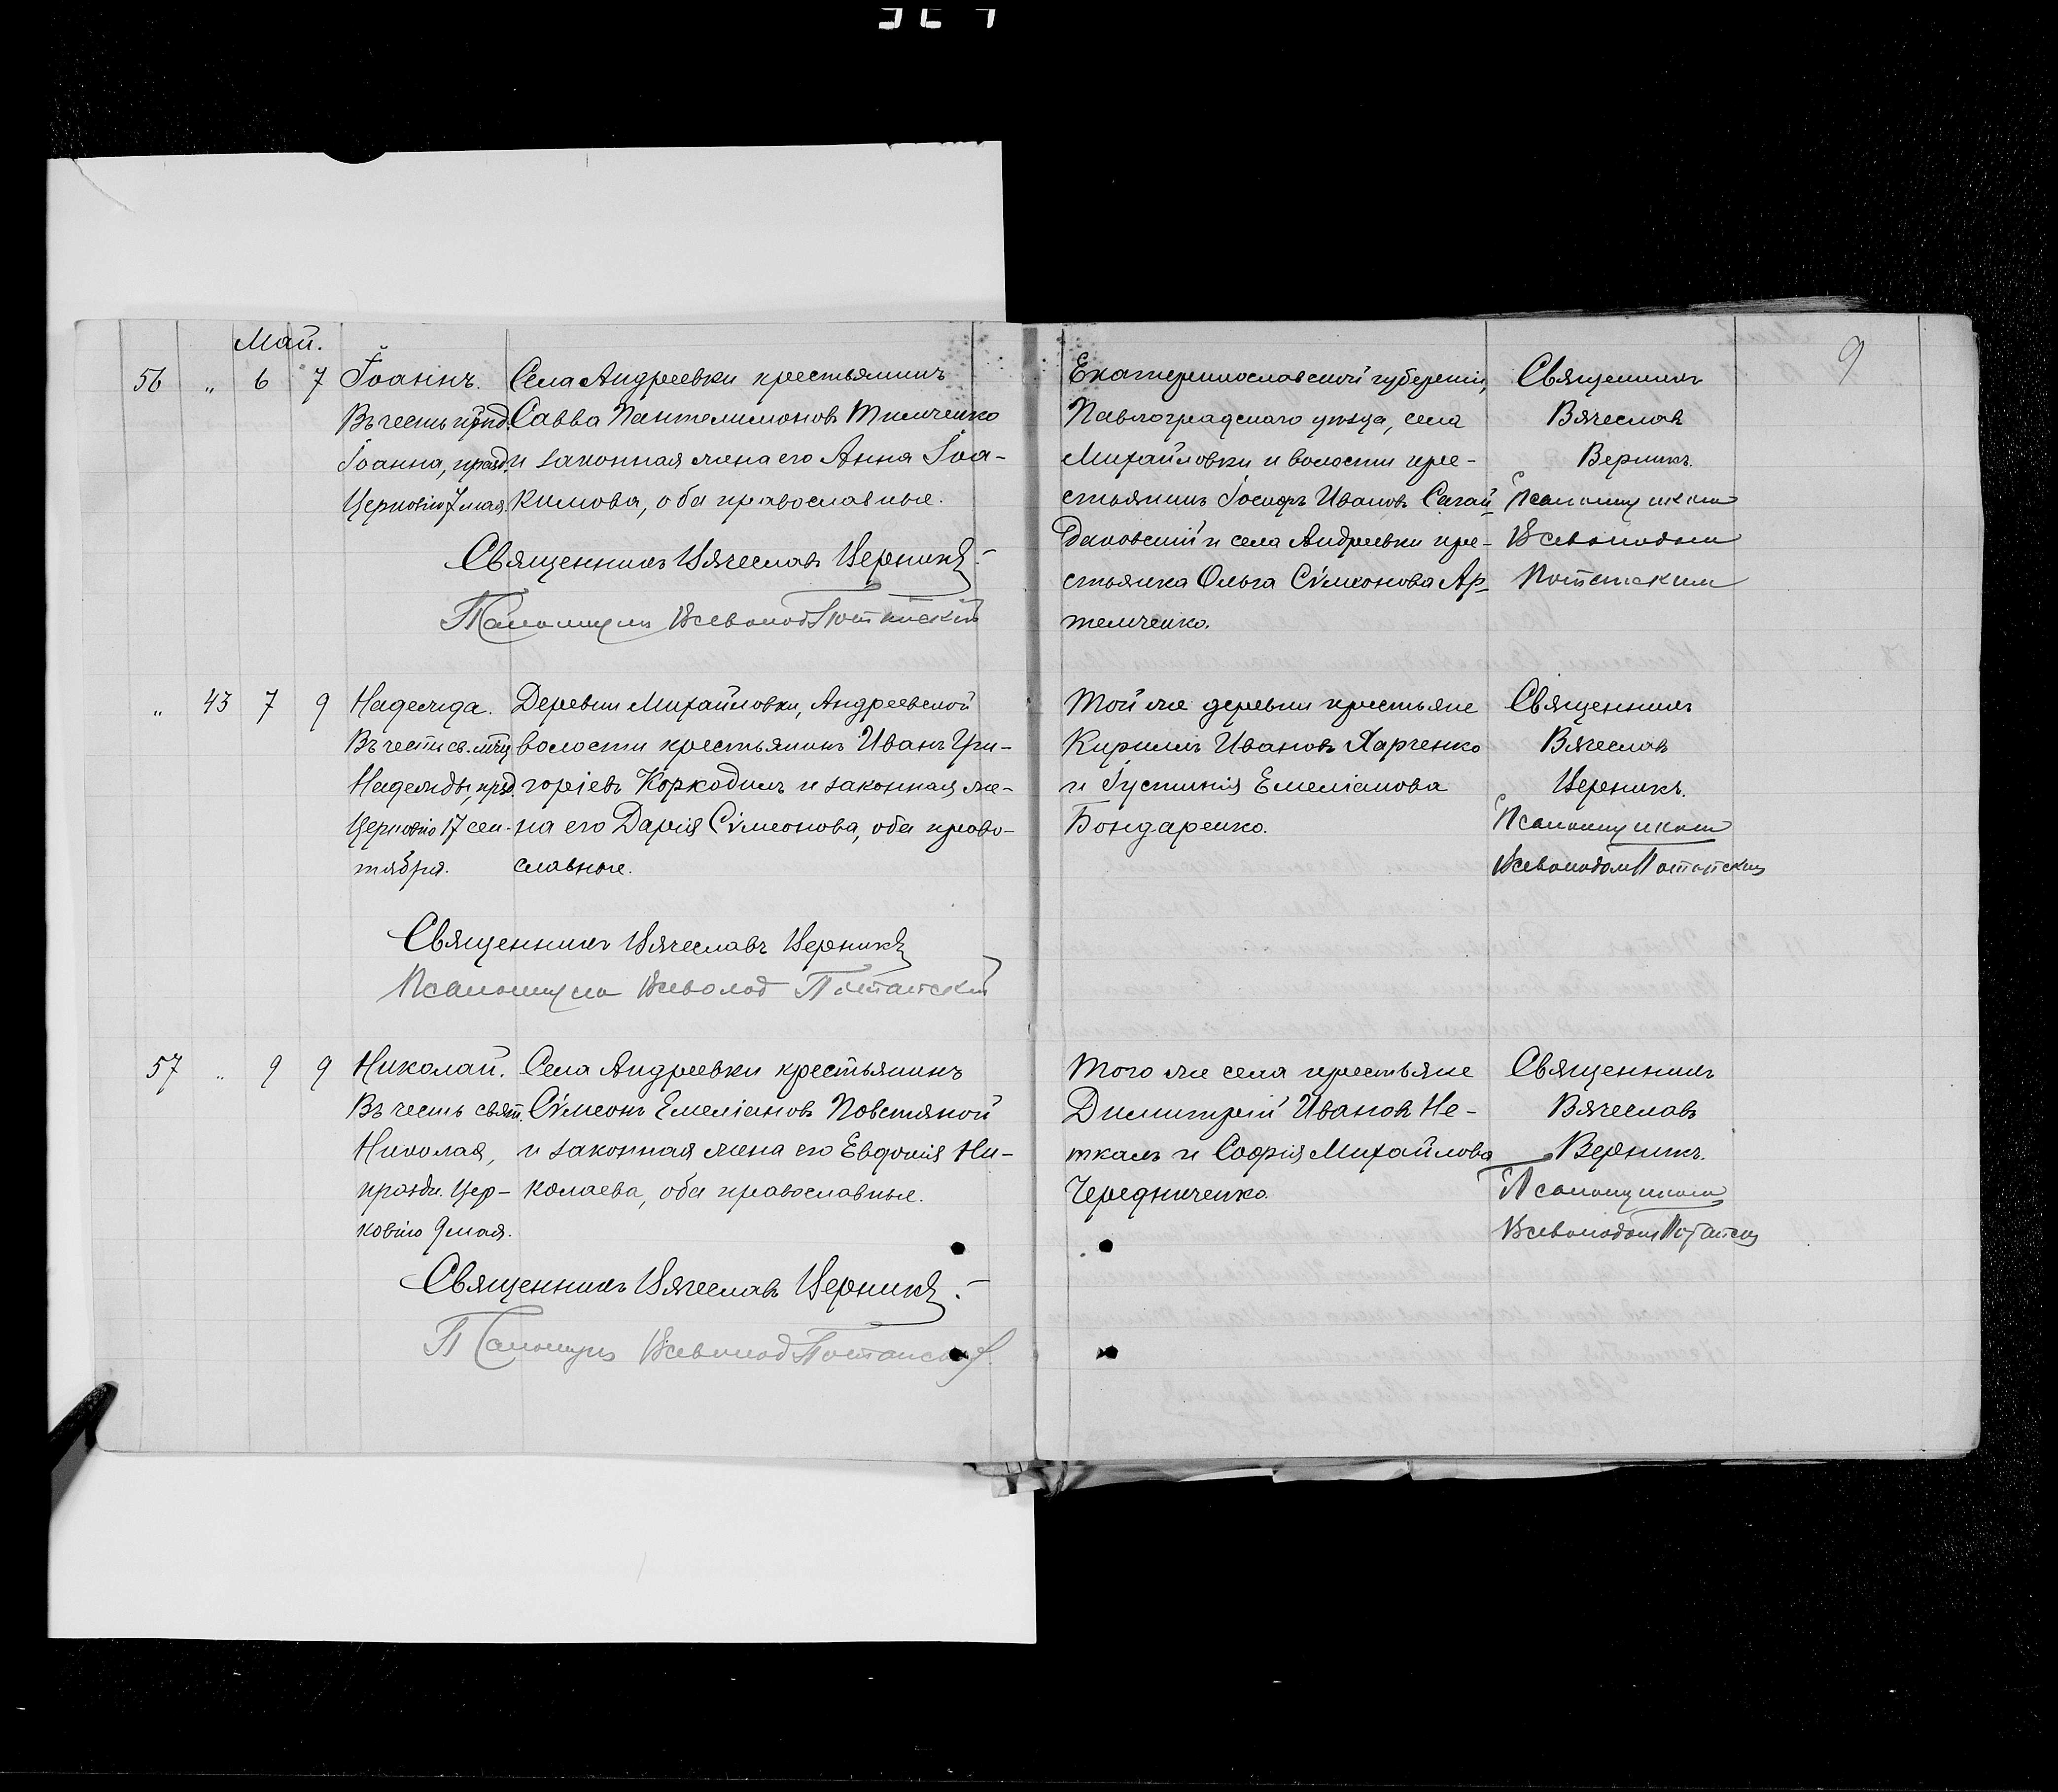 Май.
9
56 " 6 7 Іоаннъ.
Въ честь прпд.
Іоанна, празд.
Церковію 7 мая.
Села Андреевки крестьянинъ
Савва Пантелимоновъ Тимченко
и законная жена его Анна Іоа-
кимова, оба православные.
Священникъ Вячеславъ Верникъ.
Псаломщикъ Всеволод
Екатеринославской губерніи,
Павлоградскаго уѣзда, села
Михайловки и волости кре-
стьянинъ Іосифъ Ивановъ Сагай-
даковскій и села Андреевки кре-
стьянка Ольга Сѵмеонова Ар-
темченко.
Священникъ
Вячеславъ
Верникъ.
Псаломщикомъ
Всеволодом
" 43 7 9 Надежда.
Въ честь св. мчц
Надежды, прзд.
Церковію 17 сен-
тября.
Деревни Михайловки, Андреевской
волости крестьянинъ Иванъ Гри-
горіевъ Коркодилъ и законная же-
на его Дарія Сѵмеонова, оба право-
славные.
Священникъ Вячеславъ Верникъ
Псаломщикъ Всеволод
Той же деревни крестьяне
Кириллъ Ивановъ Харченко
и Іустинія Емеліанова
Бондаренко.
Священникъ
Вячеславъ
Верникъ.
Псаломщикомъ
Всеволодом
57 " 9 9 Николай.
Въ честь свят.
Николая,
праздн. Цер-
ковію 9 мая.
Села Андреевки крестьянинъ
Сѵмеонъ Емеліановъ Повстяной
и законная жена его Евдокія Ни-
колаева, оба православные.
Священникъ Вячеславъ Верникъ.
Псаломщикъ Всеволод
Того же села крестьяне
Димитрій Ивановъ Не-
ткалъ и Софія Михайлова
Чередниченко.
Священникъ
Вячеславъ
Верникъ.
Псаломщикомъ
Всеволодом